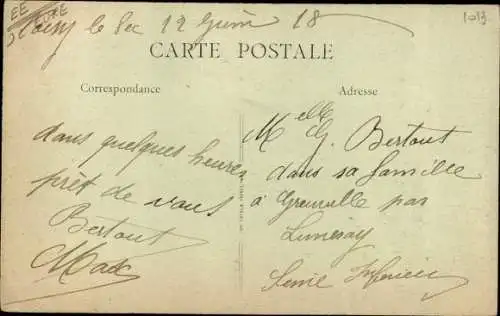 EURE
le Sec 12 Juin 18
1013
CARTE POSTALE
Correspondance
Adresse
dans quelques heures
prêt de vous
Bertout
Max
Melle G. Bertout
dans sa famille
à Grenville par
Limesay
Seine Inférieure